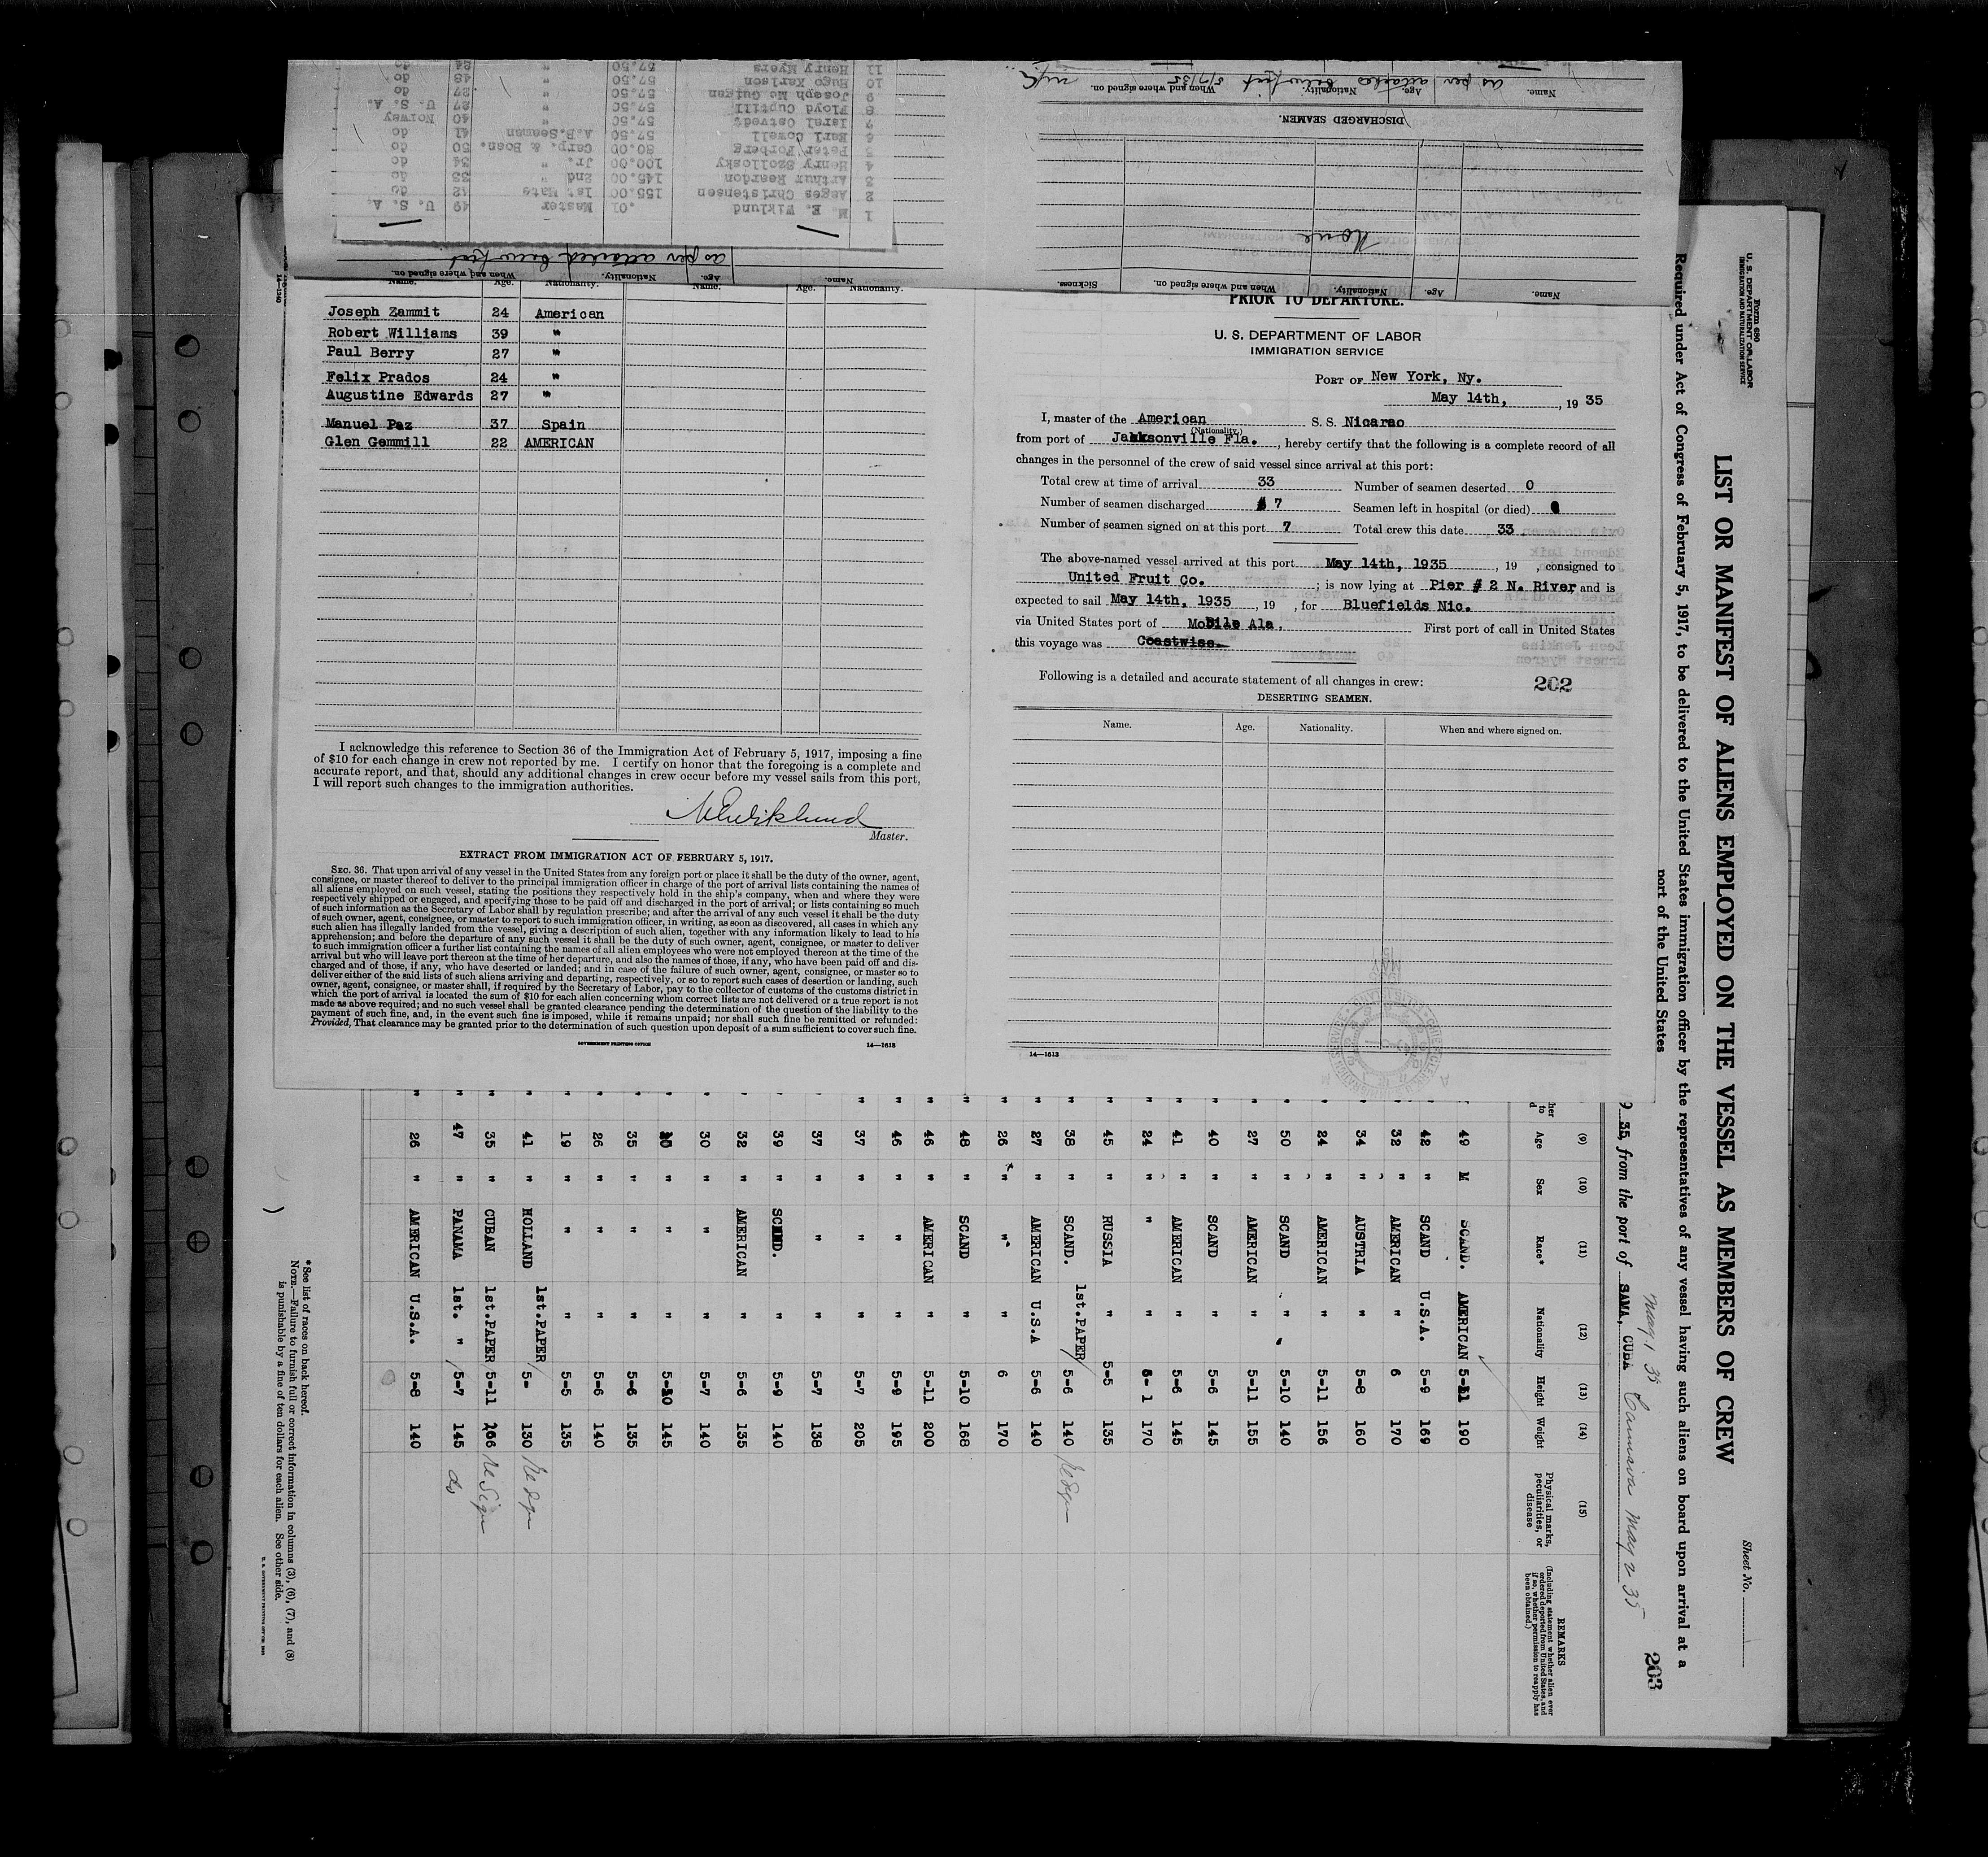 11 Henry Myers 57.50 " 24 do
10 Hugo Karlson 57.50 " 48 do
9 Joseph Mc Guigan 57.50 " 27 do
8 Floyd Cuptill 57.50 " 27 U. S. A.
7 Isrel Ostvedt 57.50 " 40 Norway
6 Earl Cowell 57.50 A.B.Seaman 41 do
5 Peter Forberg 80.00 Carp. & Bosn. 50 do
4 Henry Szollosky 100.00 Jr. " 34 do
3 Arthur Reardon 145.00 2nd " 33 do
2 Aages Christensen 155.00 1st Mate 42 do
1 M. E. Wiklund .01 Master 49 U. S. A.
as per attached crew list
Name. Age. Nationality. When and where signed on.
as per attached crew list 5/7/35 N/Y
Name. Age. Nationality. When and where signed on.
DISCHARGED SEAMEN.
None
Name. Age. Nationality. When and where signed on. Sickness.
Name. Age. Nationality. Name. Age. Nationality.
Joseph Zammit 24 American
Robert Williams 39 "
Paul Berry 27 "
Felix Prados 24 "
Augustine Edwards 27 "
Manuel Paz 37 Spain
Glen Gemmill 22 AMERICAN
I acknowledge this reference to Section 36 of the Immigration Act of February 5, 1917, imposing a fine
of $10 for each change in crew not reported by me. I certify on honor that the foregoing is a complete and
accurate report, and that, should any additional changes in crew occur before my vessel sails from this port,
I will report such changes to the immigration authorities.
M E Wiklund
Master.
EXTRACT FROM IMMIGRATION ACT OF FEBRUARY 5, 1917.
SEC. 36. That upon arrival of any vessel in the United States from any foreign port or place it shall be the duty of the owner, agent,
consignee, or master thereof to deliver to the principal immigration officer in charge of the port of arrival lists containing the names of
all aliens employed on such vessel, stating the positions they respectively hold in the ship's company, when and where they were
respectively shipped or engaged, and specifying those to be paid off and discharged in the port of arrival; or lists containing so much
of such information as the Secretary of Labor shall by regulation prescribe; and after the arrival of any such vessel it shall be the duty
of such owner, agent, consignee, or master to report to such immigration officer, in writing, as soon as discovered, all cases in which any
such alien has illegally landed from the vessel, giving a description of such alien, together with any information likely to lead to his
apprehension; and before the departure of any such vessel it shall be the duty of such owner, agent, consignee, or master to deliver
to such immigration officer a further list containing the names of all alien employees who were not employed thereon at the time of the
arrival but who will leave port thereon at the time of her departure, and also the names of those, if any, who have been paid off and dis-
charged and of those, if any, who have deserted or landed; and in case of the failure of such owner, agent, consignee, or master so to
deliver either of the said lists of such aliens arriving and departing, respectively, or so to report such cases of desertion or landing, such
owner, agent, consignee, or master shall, if required by the Secretary of Labor, pay to the collector of customs of the customs district in
which the port of arrival is located the sum of $10 for each alien concerning whom correct lists are not delivered or a true report is not
made as above required; and no such vessel shall be granted clearance pending the determination of the question of the liability to the
payment of such fine, and, in the event such fine is imposed, while it remains unpaid; nor shall such fine be remitted or refunded:
Provided, That clearance may be granted prior to the determination of such question upon deposit of a sum sufficient to cover such fine.
GOVERNMENT PRINTING OFFICE 14—1613
PRIOR TO DEPARTURE.
U. S. DEPARTMENT OF LABOR
IMMIGRATION SERVICE
PORT OF New York, Ny.
May 14th, , 19 35
I, master of the American S. S. Nicarao
(Nationality.)
from port of Jacksonville Fla. , hereby certify that the following is a complete record of all
changes in the personnel of the crew of said vessel since arrival at this port:
Total crew at time of arrival 33 Number of seamen deserted 0
Number of seamen discharged 7 Seamen left in hospital (or died)
Number of seamen signed on at this port 7 Total crew this date 33
The above-named vessel arrived at this port May 14th, 1935 , 19 , consigned to
United Fruit Co. ; is now lying at Pier # 2 N. River, and is
expected to sail May 14th, 1935 , 19 , for Bluefields Nic.
via United States port of Mobile Ala. First port of call in United States
this voyage was Coastwise.
Following is a detailed and accurate statement of all changes in crew:
202
DESERTING SEAMEN.
Name. Age. Nationality. When and where signed on.
14—1613
Form 680
U. S. DEPARTMENT OF LABOR
IMMIGRATION AND NATURALIZATION SERVICE
Sheet No.
LIST OR MANIFEST OF ALIENS EMPLOYED ON THE VESSEL AS MEMBERS OF CREW
Required under Act of Congress of February 5, 1917, to be delivered to the United States immigration officer by the representatives of any vessel having such aliens on board upon arrival at a
port of the United States
203
May 1 35
35, from the port of SAMA, CUBA May 2 35
(9) (10) (11) (12) (13) (14) (15)
Age Sex Race* Nationality Height Weight Physical marks, peculiarities, or disease
REMARKS
(Including statement whether alien ever
ordered deported from United States, and
if so, whether permission to reapply has
been obtained.)
49 M SCAND. AMERICAN 5-11 190
42 " SCAND U.S.A. 5-9 169
32 " AMERICAN " 6 170
34 " AUSTRIA " 5-8 160
24 " AMERICAN " 5-11 156
50 " SCAND " 5-10 140
27 " AMERICAN " 5-11 155
40 " SCAND " 5-6 145
41 " AMERICAN " 5-6 145
24 " " " 6-1 170
45 " RUSSIA " 5-5 135
38 " SCAND. 1st.PAPER 5-6 140
27 " AMERICAN U.S.A 5-6 140
26 " " " 6 170
48 " SCAND " 5-10 168
46 " AMERICAN " 5-11 200
46 " " " 5-9 195
37 " " " 5-7 205
37 " " " 5-7 138
39 " SCAND. " 5-9 140
32 " AMERICAN " 5-6 135
30 " " " 5-7 140
" " " 5-10 145
35 " " " 5-6 135
26 " " " 5-6 140
19 " " " 5-5 135
41 " HOLLAND 1st.PAPER 5- 130
35 " CUBAN 1st.PAPER 5-11 166 Re Sign
47 " PANAMA 1st. " 5-7 145 do
26 " AMERICAN U.S.A. 5-8 140
*See list of races on back hereof.
NOTE.—Failure to furnish full or correct information in columns (3), (6), (7), and (8)
is punishable by a fine of ten dollars for each alien. See other side.